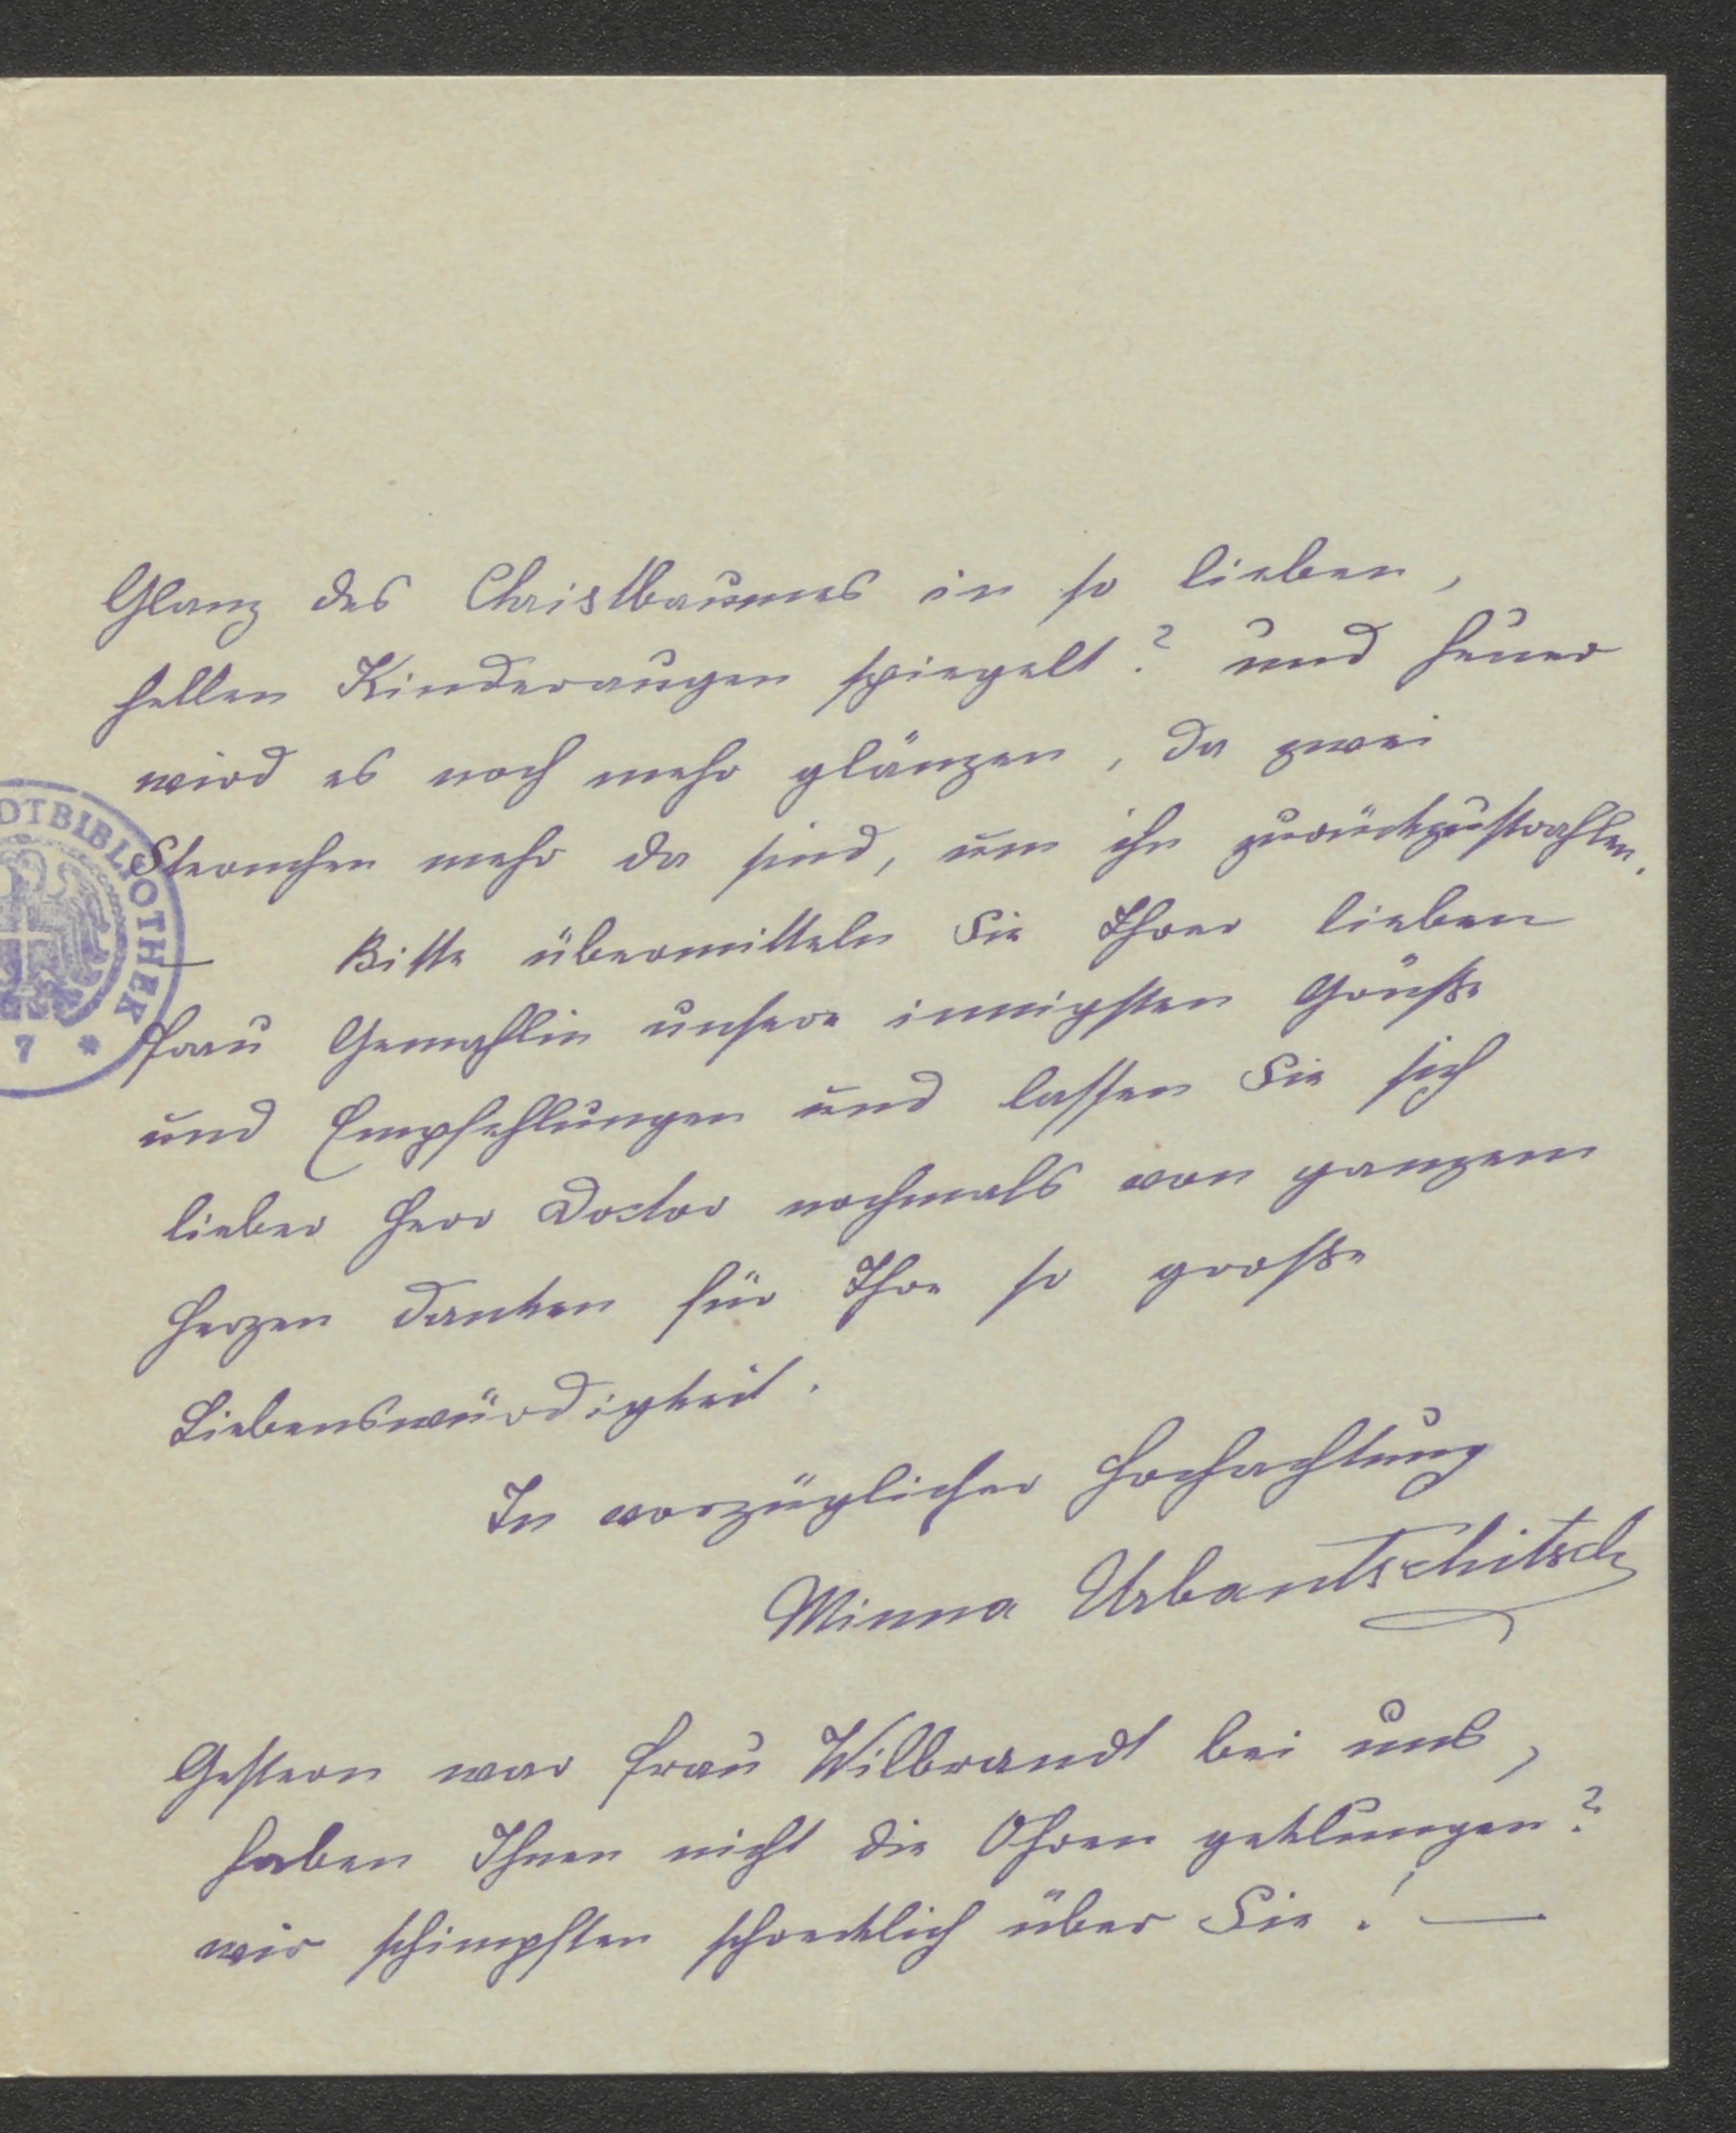 Glanz des Christbaumes in so lieben,
hellen Kinderaugen spiegelt? und heuer
wird es noch mehr glänzen, da zwei
Sternchen mehr da sind, um ihn zurückzustrahlen.
— Bitte übermitteln Sie Ihrer lieben
Frau Gemahlin unsere innigsten Grüße
und Empfehlungen und lassen Sie sich
lieber Herr Doctor nochmals von ganzem
Herzen danken für Ihre so große
Liebenswürdigkeit.
In vorzüglicher Hochachtung
Minna Urbantschitsch
Gestern war Frau Wilbrandt bei uns,
haben Ihnen nicht die Ohren geklungen?
wir schimpften schrecklich über Sie! —
DTBIBLIOTHEK
7 *